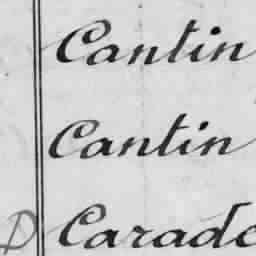 Cantin
Cantin
D Carade